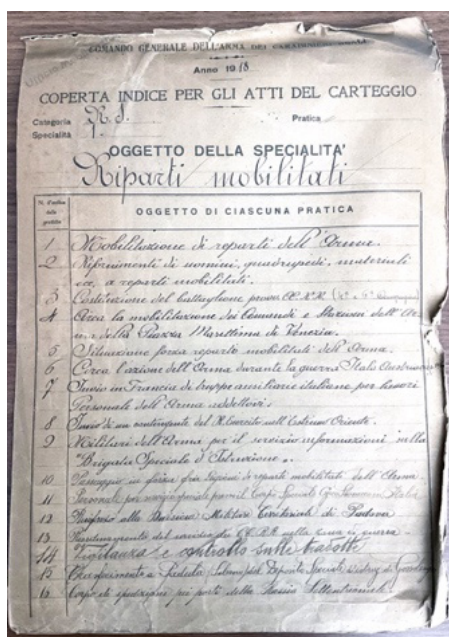 COMANDO GENERALE DELL'ARMA DEI CARABINIERI REALI
Anno 1918
COPERTA INDICE PER GLI ATTI DEL CARTEGGIO
Categoria R. S. Pratica
Specialità 1.
OGGETTO DELLA SPECIALITA'
Riparti mobilitati
N. d'ordine della pratica
OGGETTO DI CIASCUNA PRATICA
1 Mobilitazione di reparti dell'Arma.
2 Rifornimenti di uomini, quadrupedi, materiali
ecc, a reparti mobilitati.
3 Costituzione del battaglione presso
4 Circa la mobilitazione dei Comandi e Stazioni dell'Ar-
ma della Piazza Marittima di Venezia.
5 Situazione forza reparti mobilitati dell'Arma.
6 Circa l'azione dell'Arma durante la guerra Italo Austriaca
7 Invio in Francia di truppe ausiliarie italiane per lavori
Personale dell'Arma addettovi.
8 Invio di un contingente del R. Esercito nell'Estremo Oriente.
9 Militari dell'Arma per il servizio informazioni nella
"Brigata Speciale d'Istruzione".
10 Passaggio in forza fra legioni di reparti mobilitati dell'Arma.
11 Personale per
12 alla Militare Territoriale di Padova
13 del servizio dei CC. RR. nella zona di guerra
14 Vigilanza e controllo sulle tradotte
15 Trasferimento a del Deposito Speciale
16 Corpo di spedizione pei porti della Russia Settentrionale.